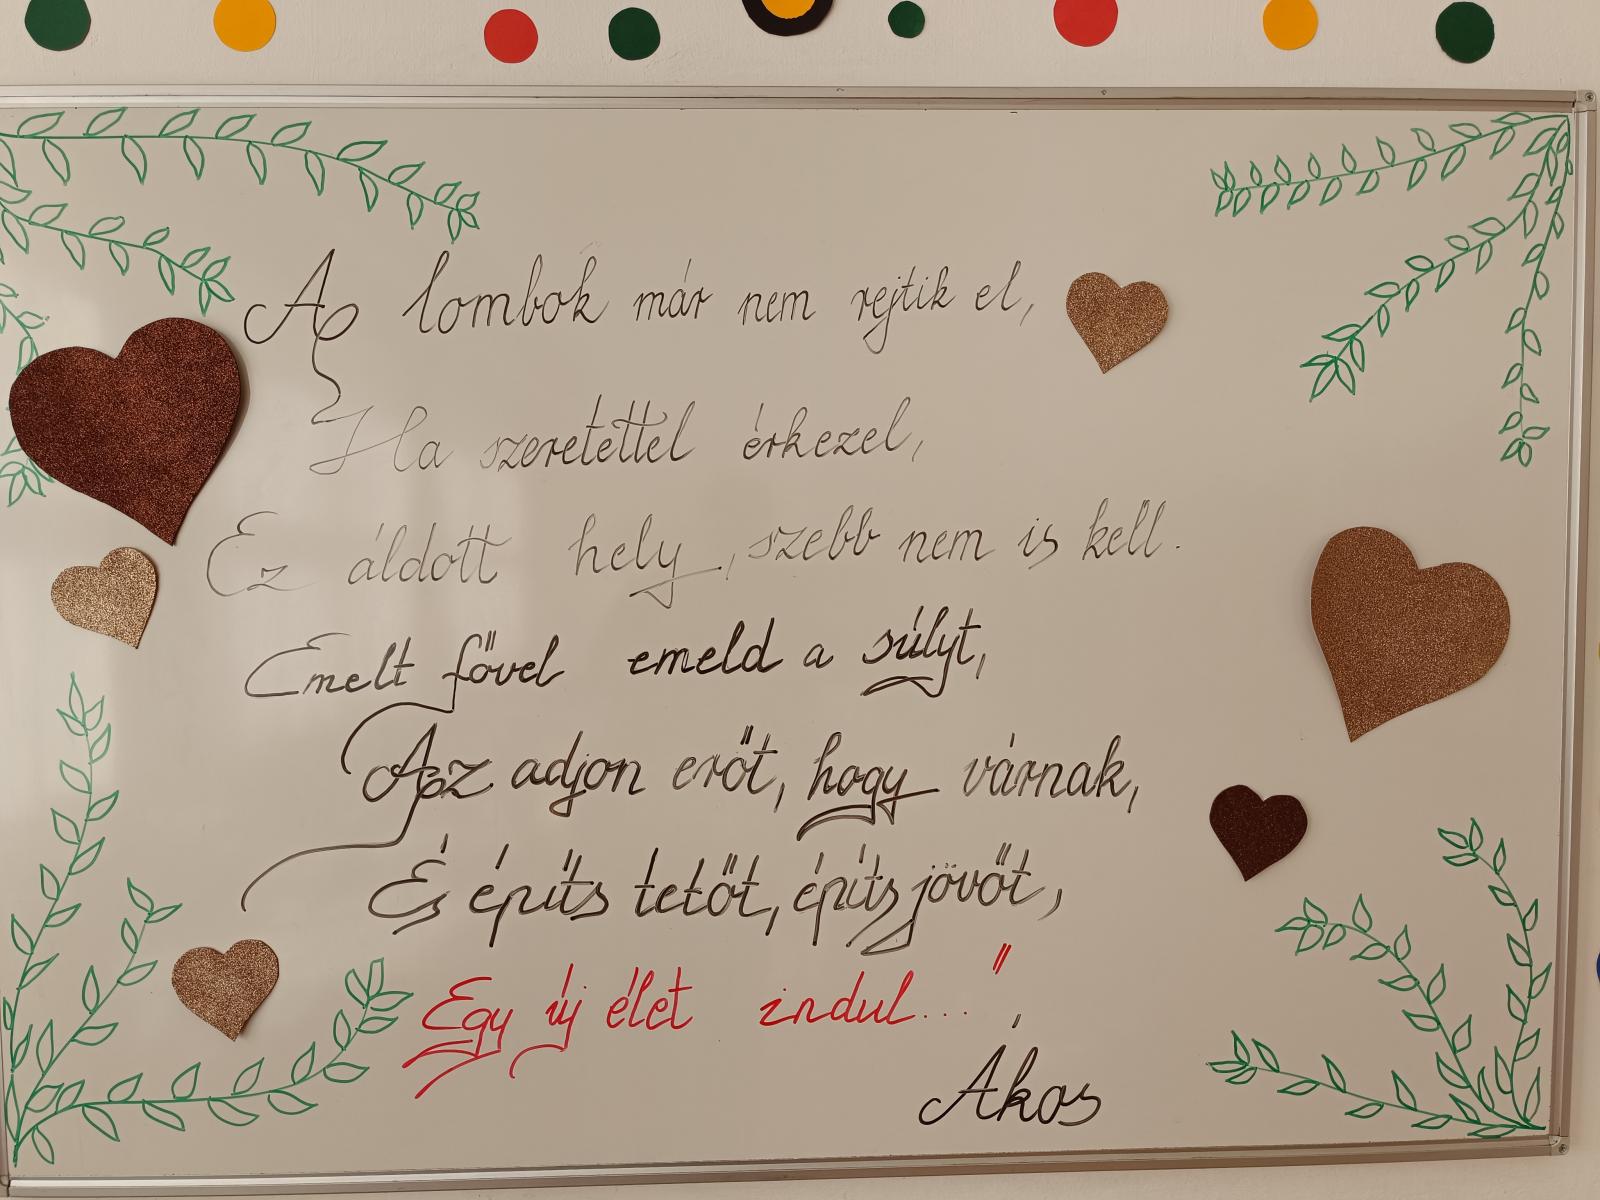 A lombok már nem rejtik el,
Ha szeretettel érkezel,
Ez áldott hely, szebb nem is kell.
Emelt fővel emeld a súlyt,
Az adjon erőt, hogy várnak,
És építs tetőt, építs jövőt,
Egy új élet indul..."
Ákos